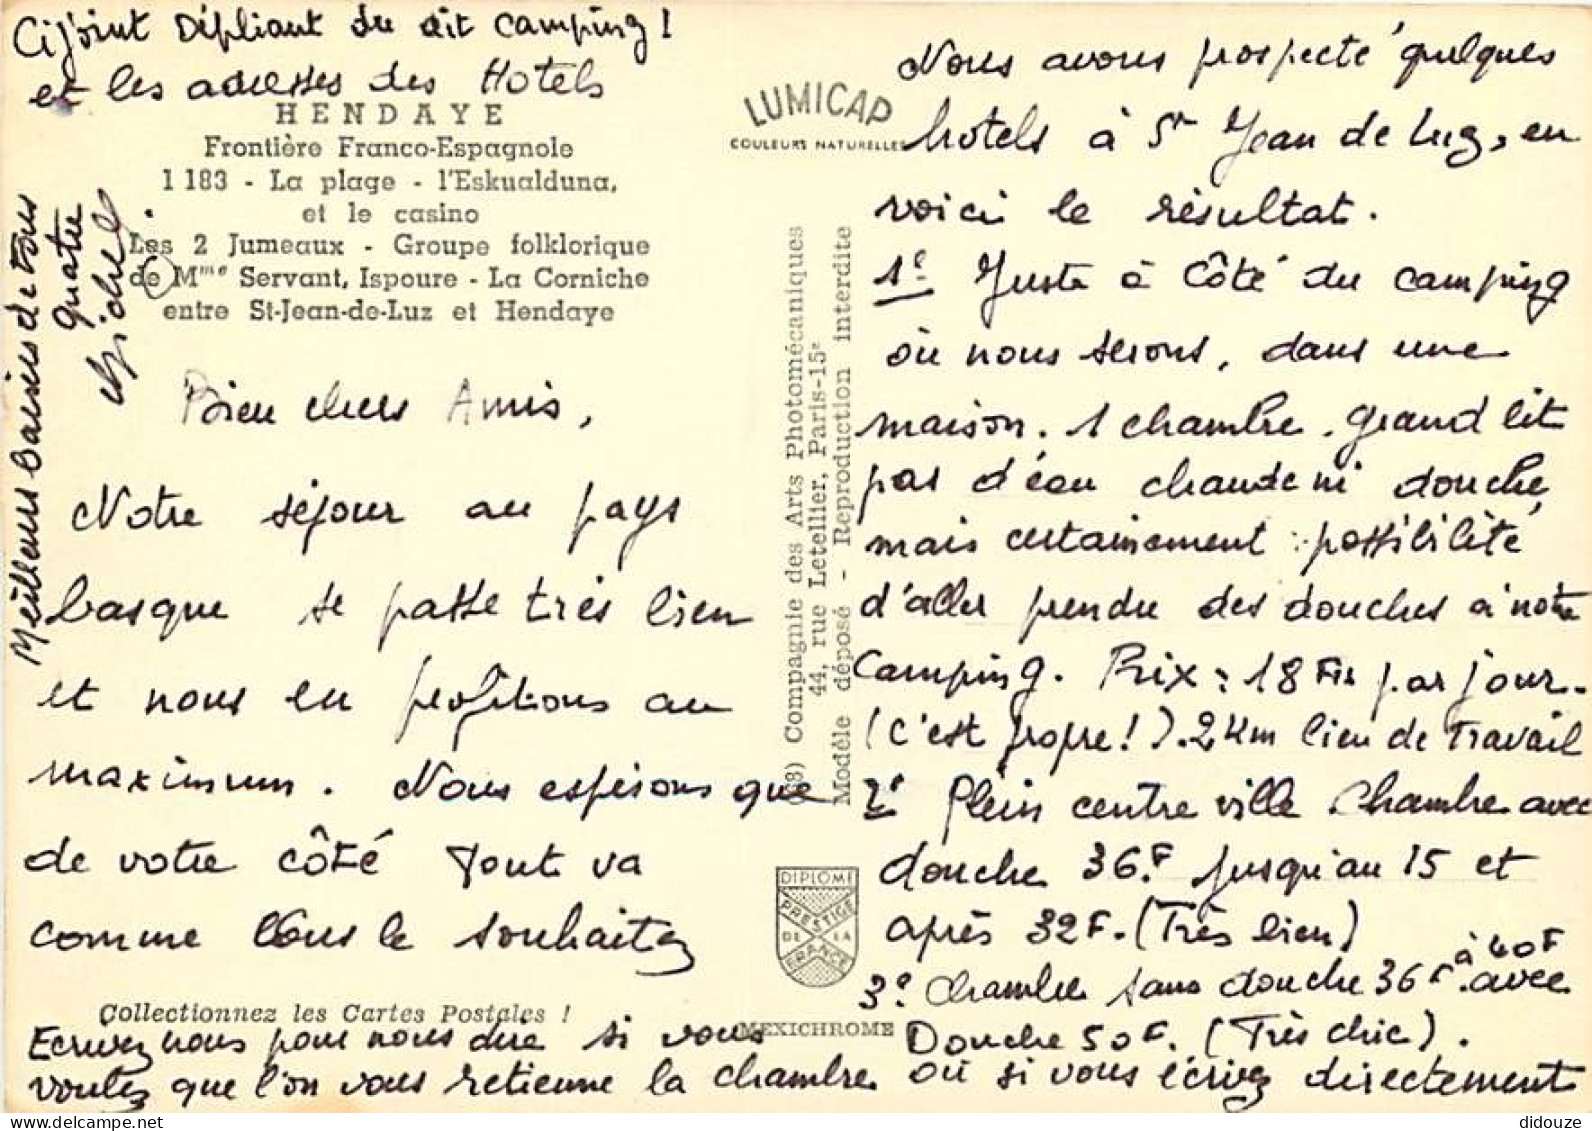 Ci joint Dépliant du dit camping !
et les adresses des Hotels
HENDAYE
Frontière Franco-Espagnole
1 183 - La plage - l'Eskualduna,
et le casino
Les 2 Jumeaux - Groupe folklorique
de Mme Servant, Ispoure - La Corniche
entre St-Jean-de-Luz et Hendaye
Bien chers Amis,
Notre séjour au pays
basque se passe très bien
et nous en profitons au
maximum. Nous espérons que
de votre côté tout va
comme vous le souhaitez
Collectionnez les Cartes Postales !
Ecrivez nous pour nous dire si vous
voulez que l'on vous retienne la chambre ou si vous écrivez directement
Meilleurs baisers de tous
quatre
Michel
LUMICAP
COULEURS NATURELLES
(68) Compagnie des Arts Photomécaniques
44, rue Letellier, Paris-15e
Modèle déposé - Reproduction interdite
DIPLOME
PRESTIGE
DE LA
FRANCE
MEXICHROME
Nous avons prospecté quelques
hotels à St Jean de Luz, en
voici le résultat.
1e Juste à côté du camping
où nous serons, dans une
maison. 1 chambre. grand lit
pas d'eau chaude ni douche,
mais certainement possibilité
d'aller prendre des douches à notre
camping. Prix : 18 Frs par jour.
(c'est propre!). 2 Km lieu de travail
2e Plein centre ville chambre avec
douche 36.F jusqu'au 15 et
après 32F. (Très bien)
3e chambre sans douche 36F à 40F avec
Douche 50F. (Très chic).
delcampe.net
didouze